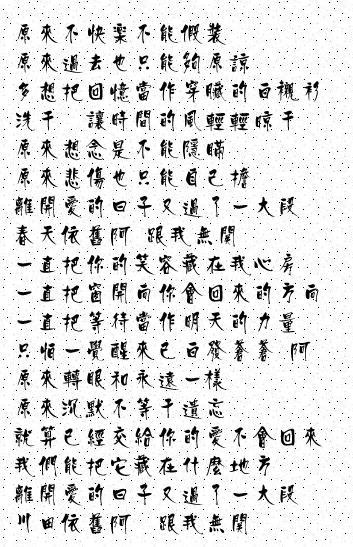 原來不快樂不能假裝
原來過去也只能夠原諒
多想把回憶當作穿髒的白襯衫
洗干 讓時間的風輕輕晾干
原來想念是不能隱瞞
原來悲傷也只能自己擔
離開愛的日子又過了一大段
春天依舊阿 跟我無關
一直把你的笑容藏在我心房
一直把窗開向你會回來的方向
一直把等待當作明天的力量
只怕一覺醒來已白發蒼蒼 阿
原來轉眼和永遠一樣
原來沉默不等于遺忘
就算已經交給你的愛不會回來
我們能把它藏在什麼地方
離開愛的日子又過了一大段
川田依舊阿 跟我無關